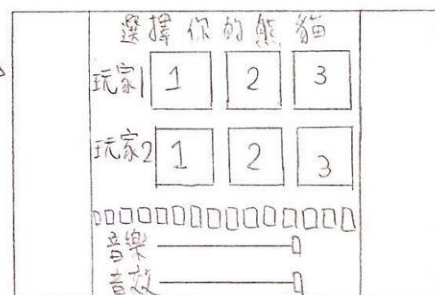 選擇你的熊貓
玩家1 1 2 3
玩家2 1 2 3
音樂
音效